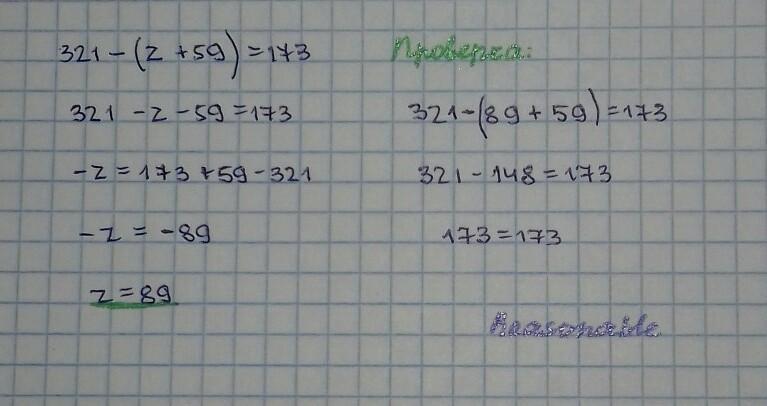 321 - (z + 59) = 173
321 - z - 59 = 173
-z = 173 + 59 - 321
-z = -89
z = 89
Проверка:
321 - (89 + 59) = 173
321 - 148 = 173
173 = 173